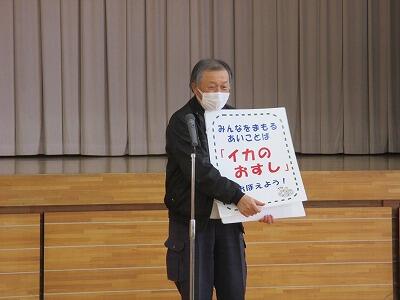 みんなをまもる
あいことば
「イカの
おすし」
おぼえよう!